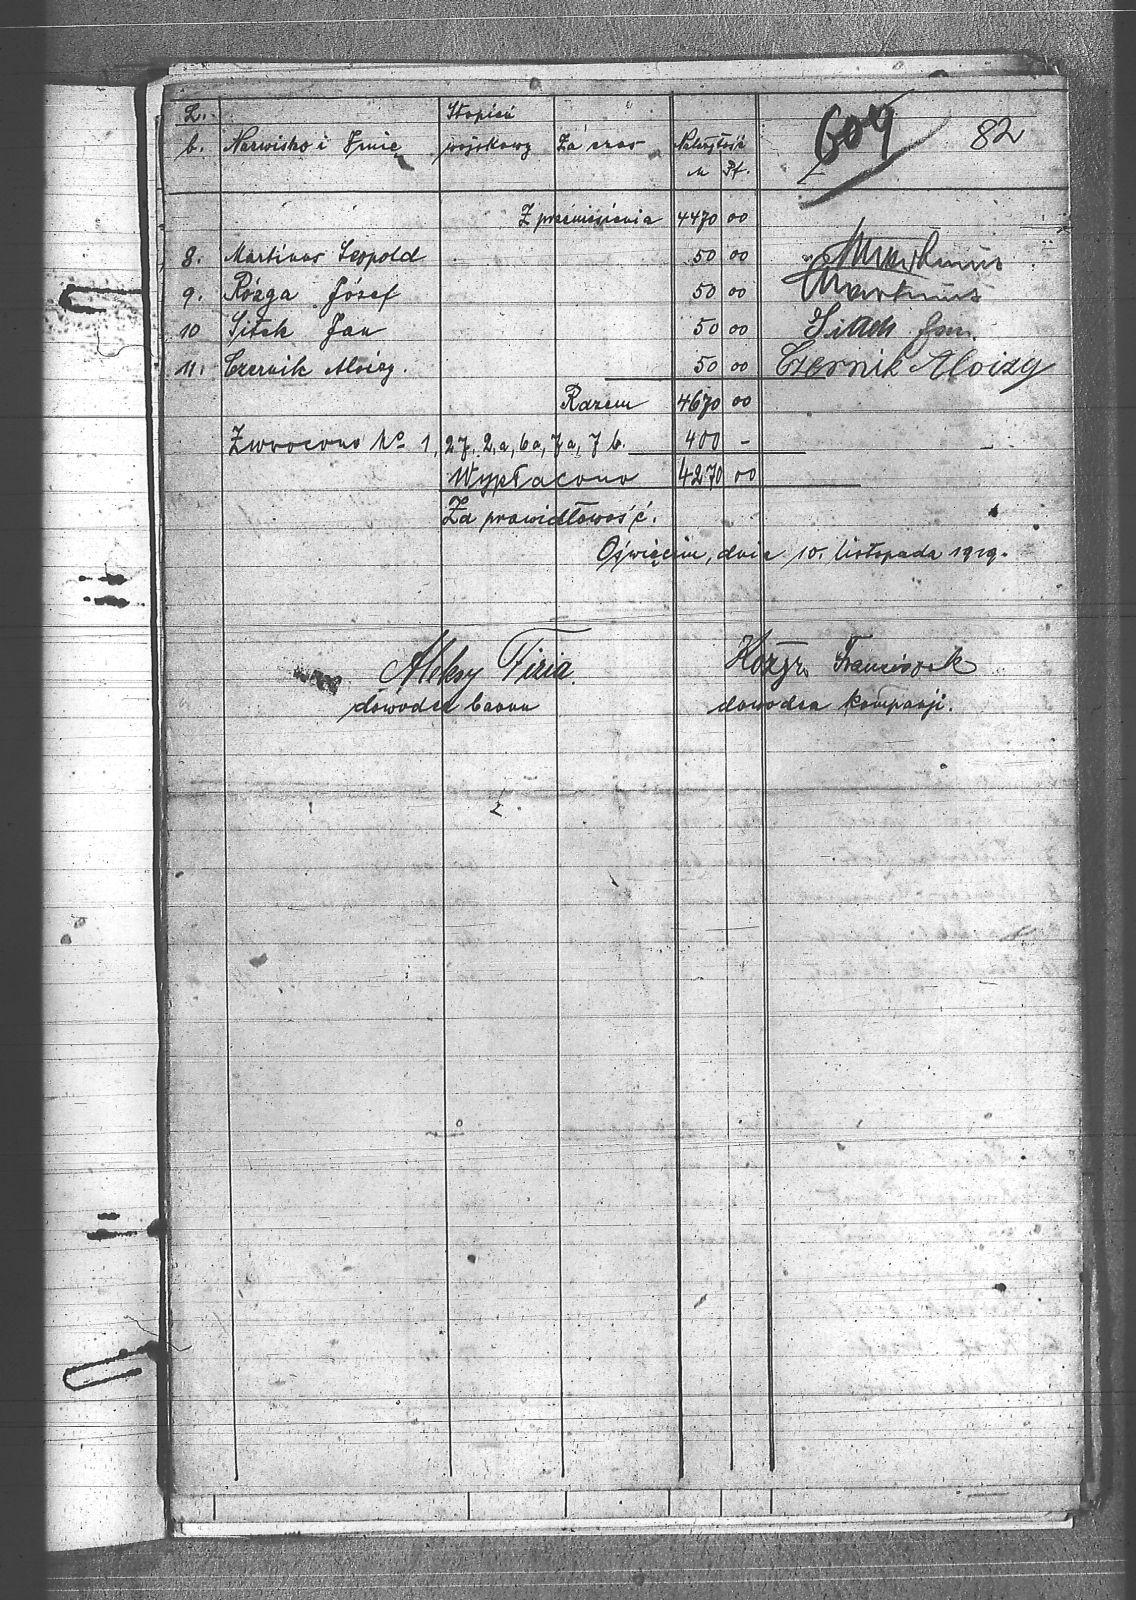 L. Stopień 604 82
b. Nazwisko i Imię wojskowy Za czas Należytość
M Pf.
Z przeniesienia 4470 00
8. Martinus Leopold 50 00 Martinus
9. Rózga Józef 50 00 Martinus
10 Sitek Jan 50 00 Sitek Jan.
11. Czernik Aloizy. 50 00 Czernik Aloizy
Razem 4670 00
Zwrócono No 1, 27, 2,a, 6a, 7a, 7b. 400 -
Wypłacono 4270 00
Za prawidłowość.
Oświęcim, dnia 10. listopada 1919.
Aleksy Fizia. Franciszek
dowódca baonu dowódca kompanji.